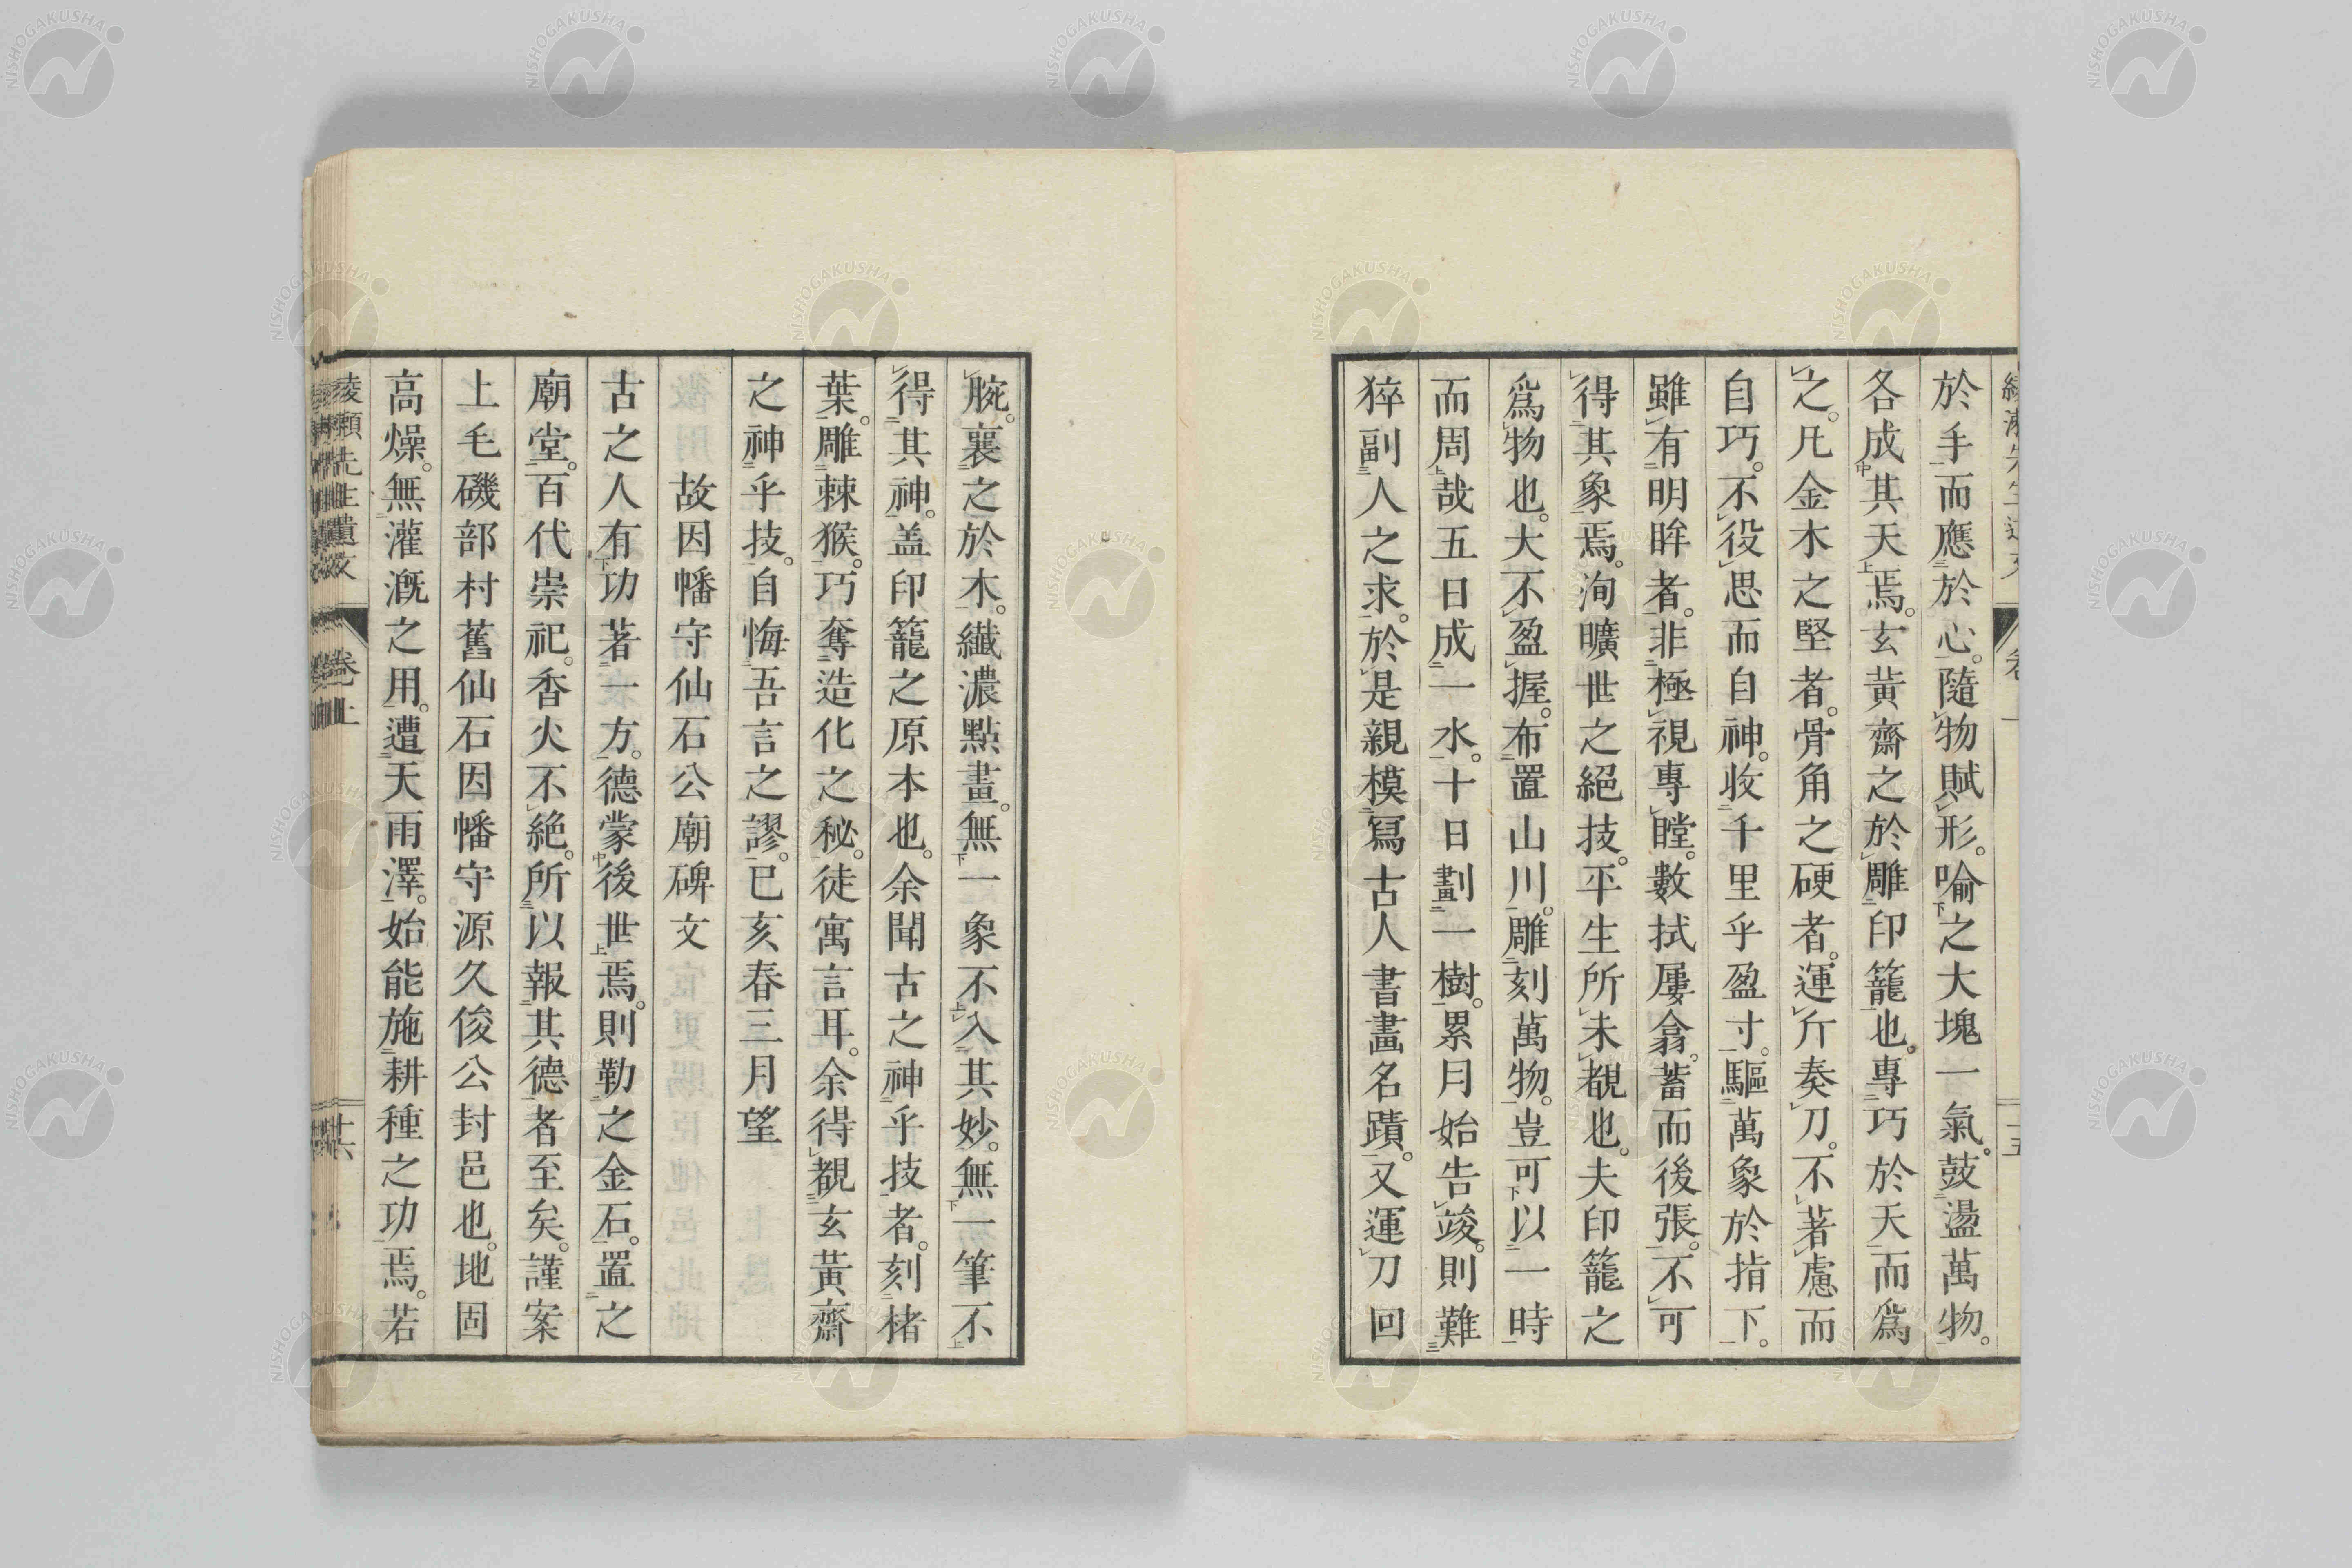 於手而應於心。隨物賦形。喻之大塊一氣。鼓盪萬物。
各成其天焉。玄黃齋之於雕印籠也。專巧於天而爲
之。凡金木之堅者。骨角之硬者。運斤奏刀。不著慮而
自巧。不役思而自神。收千里乎盈寸。驅萬象於指下。
雖有明眸者。非極視專瞠。數拭屢翕。蓄而後張。不可
得其象焉。洵曠世之絕技。平生所未覩也。夫印籠之
爲物也。大不盈握。布置山川。雕刻萬物。豈可以一時
而周哉五日成一水。十日劃一樹。累月始告竣。則難
猝副人之求。於是親模冩古人書畫名蹟。又運刀回
腕。襄之於木。纎濃點畫。無一象不入其妙。無一筆不
得其神。盖印籠之原本也。余聞古之神乎技者。刻楮
葉。雕棘猴。巧奪造化之秘。徒寓言耳。余得覩玄黃齋
之神乎技。自悔吾言之謬。已亥春三月望
故因幡守仙石公廟碑文
古之人有功著一方。德蒙後世焉。則勒之金石。置之
廟堂。百代崇祀。香火不絕。所以報其德者至矣。謹案
上毛磯部村舊仙石因幡守源久俊公封邑也。地固
高燥。無灌漑之用。遭天雨澤。始能施耕種之功焉。若
先生遺文 卷上 十六
NISHOGAKUSHA